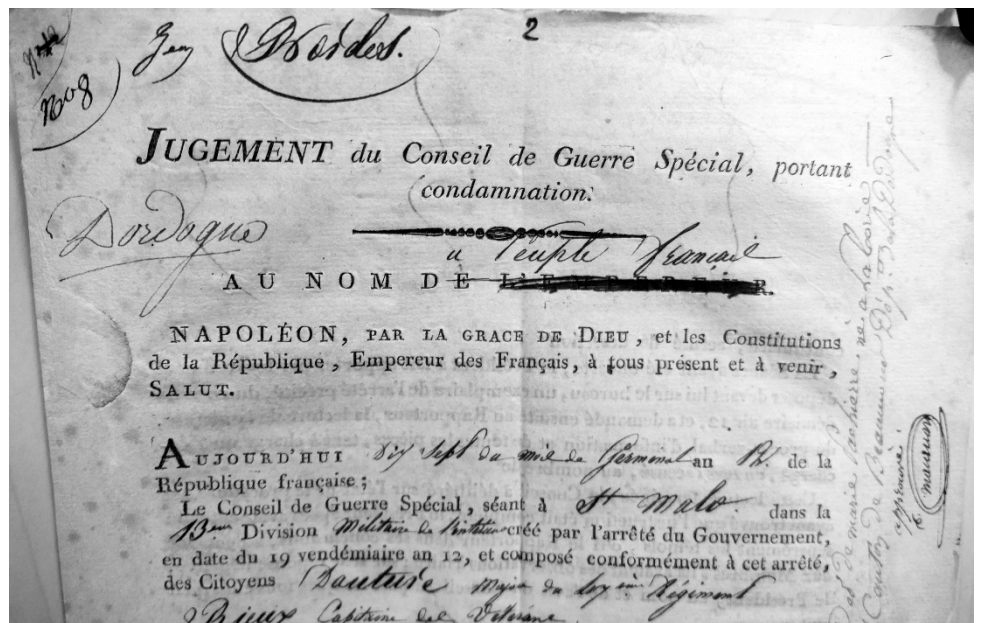 2
No 8
JUGEMENT du Conseil de Guerre Spécial, portant
condamnation.
Dordogne
u Peuple français
AU NOM DE L'EMPEREUR.
NAPOLÉON, PAR LA GRACE DE DIEU, et les Constitutions
de la République, Empereur des Français, à tous présent et à venir,
SALUT.
AUJOURD'HUI dix Sept du mois de Germinal an 13. de la
République française;
Le Conseil de Guerre Spécial, séant à St Malo dans la
13eme Division Militaire créé par l'arrêté du Gouvernement,
en date du 19 vendémiaire an 12, et composé conformément à cet arrêté,
des Citoyens Dauture Major du Régiment
Rieux Capitaine
de marie né a
Canton de Beaumont Dép. de la Dordogne
approuvé